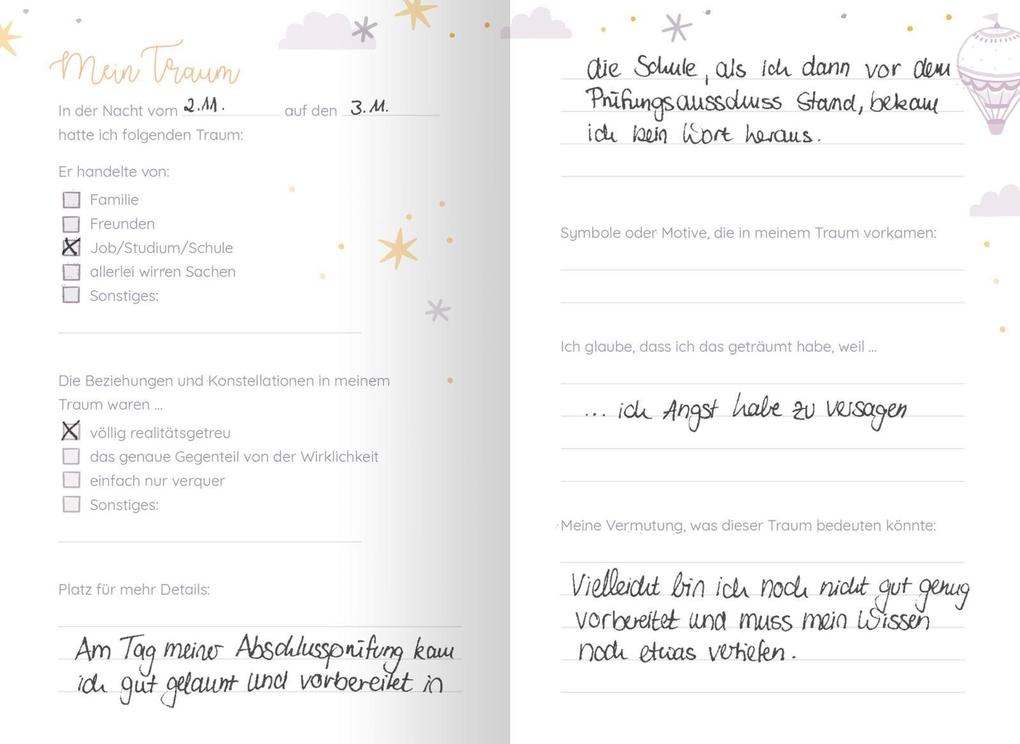 Mein Traum
In der Nacht vom 2.11. auf den 3.11.
hatte ich folgenden Traum:
Er handelte von:
Familie
Freunden
Job/Studium/Schule
allerlei wirren Sachen
Sonstiges:
Die Beziehungen und Konstellationen in meinem
Traum waren ...
völlig realitätsgetreu
das genaue Gegenteil von der Wirklichkeit
einfach nur verquer
Sonstiges:
Platz für mehr Details:
Am Tag meiner Abschlussprüfung kam
ich gut gelaunt und vorbereitet in
die Schule, als ich dann vor dem
Prüfungsausschuss stand, bekam
ich kein Wort heraus.
Symbole oder Motive, die in meinem Traum vorkamen:
Ich glaube, dass ich das geträumt habe, weil ...
... ich Angst habe zu versagen
Meine Vermutung, was dieser Traum bedeuten könnte:
Vielleicht bin ich noch nicht gut genug
vorbereitet und muss mein Wissen
noch etwas vertiefen.